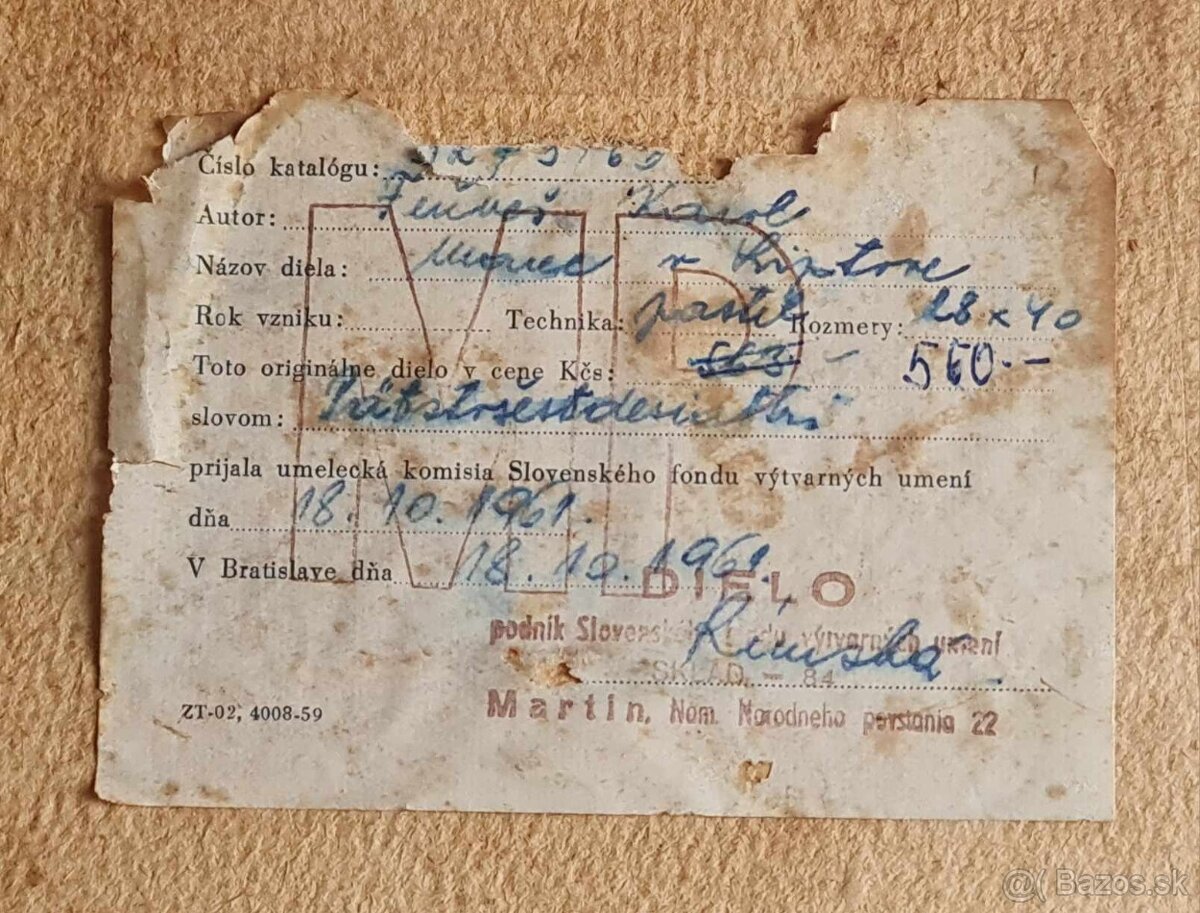 Číslo katalógu:
Autor: Karol
Názov diela: v Liptove
Rok vzniku: Technika: pastel Rozmery: 28 x 40
Toto originálne dielo v cene Kčs: 560.-
slovom:
prijala umelecká komisia Slovenského fondu výtvarných umení
dňa 18. 10. 1961.
V Bratislave dňa 18. 10. 1961.
DIELO
podnik Slovenského fondu výtvarných umení
SKLAD - 84
ZT-02, 4008-59 Martin, Nám. Národneho povstania 22
@( Bazos.sk